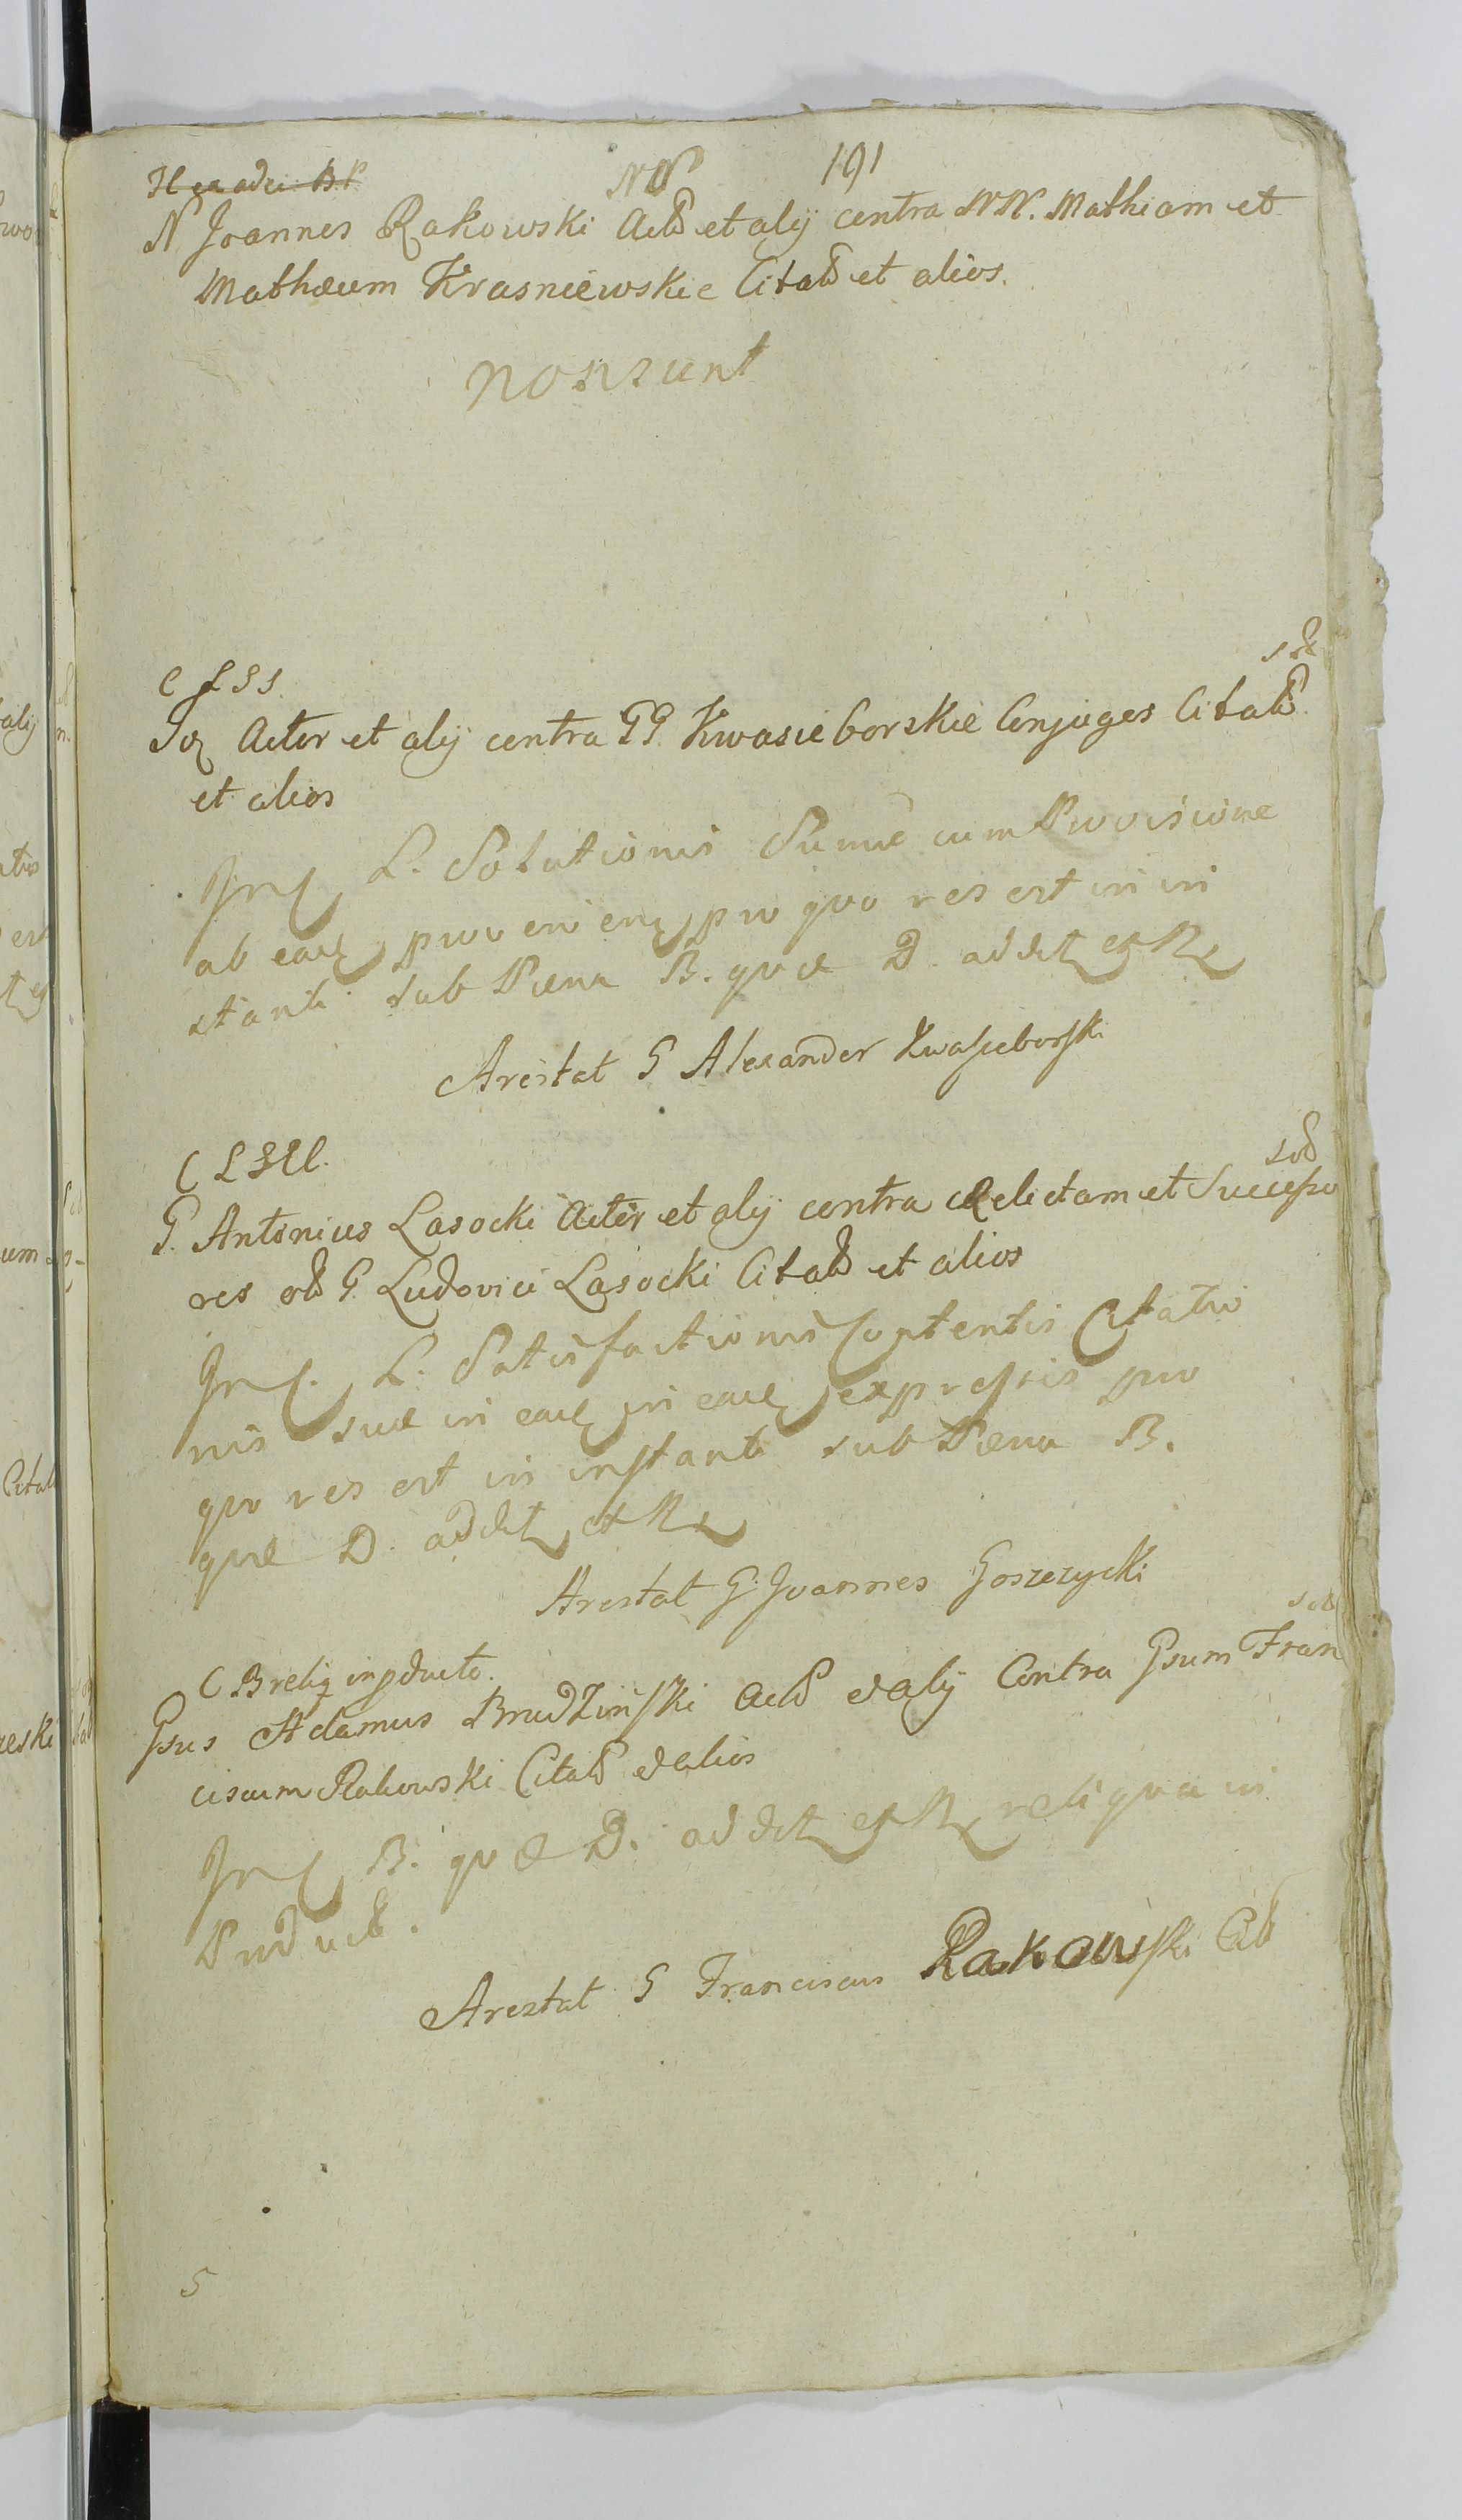 NN 191
N Joannes Rakowski Act et alij contra NN. Mathiam et
Mathæum Krasniewskie Citat et alios.
non sunt
C L S S
Actor et alij contra GG. Kwasieborskie Conjuges Citat
et alios
L. Solutionis Sumæ cum Provisione
ab eaq provenienq pro quo res est in in
stanti sub Pœna B. quæ D. addet
Arestat G Alexander Kwasieborski
sol
G. Antonius Lasocki Actor et alij contra Relictam et Successo
res G. Ludovici Lasocki Citat et alios
L. Satisfactionis Contentis Citatio
nis suæ in eaq in eaq expressis pro
quo res est in instanti sub Pœna B.
quæ D. addet
Arestat G. Joannes Goszczycki
C B reliq in
Gsus Adamus Brudzinski Act et alij Contra Gsum Fran
ciscum Rakowski Citat et alios
B. quæ D. addet reliqua in
Arestat G Franciscus Rakowski Cit
5